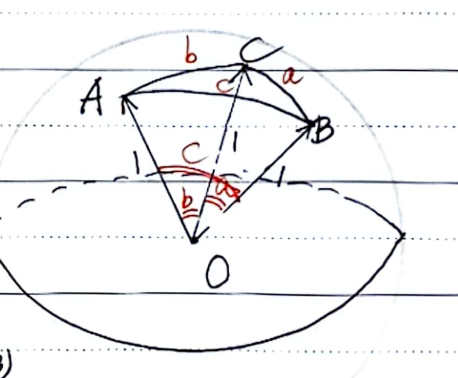 b C a
A c B
1 C 1 1
b a
O
3)